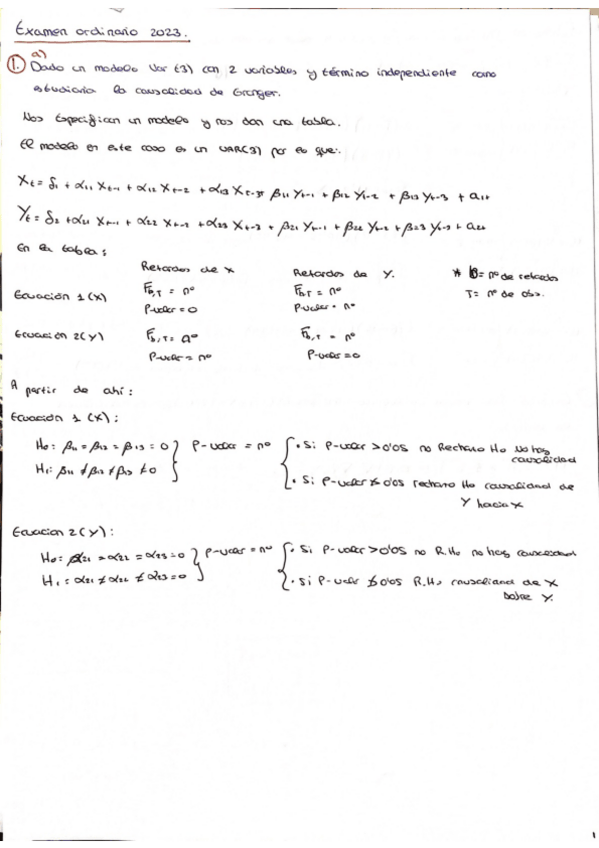 Examen ordinario 2023.
a)
1. Dado un modelo Var (3) con 2 variables y término independiente como
estudiaria la causalidad de Granger.
Nos Especifican un modelo y nos dan una tabla.
El modelo en este caso es un VAR(3) por lo que:
Xt = δ1 + α11 Xt-1 + α12 Xt-2 + α13 Xt-3+ β11 Yt-1 + β12 Yt-2 + β13 Yt-3 + a1t
Yt = δ2 + α21 Xt-1 + α22 Xt-2 + α23 Xt-3 + β21 Yt-1 + β22 Yt-2 + β23 Yt-3 + a2t
En la tabla:
Retardos de X Retardos de Y. * b = nº de retardos
Ecuación 1 (X) Fb,T = nº Fb,T = nº T = nº de obs.
P-valor = 0 P-valor = nº
Ecuación 2 (Y) Fb,T = nº Fb,T = nº
P-valor = nº P-valor = 0
A partir de ahí:
Ecuación 1 (X):
H0: β11 = β12 = β13 = 0 } P-valor = nº { • Si P-valor > 0'05 no Rechazo H0 No hay
causalidad
H1: β11 ≠ β12 ≠ β13 ≠ 0 • Si P-valor ≤ 0'05 rechazo H0 causalidad de
Y hacia X
Ecuacion 2 (Y):
H0: α21 = α22 = α23 = 0 } P-valor = nº { • Si P-valor > 0'05 no R.H0 no hay causalidad
H1: α21 ≠ α22 ≠ α23 = 0 • Si P-valor ≤ 0'05 R.H0 causalidad de X
sobre Y.
1